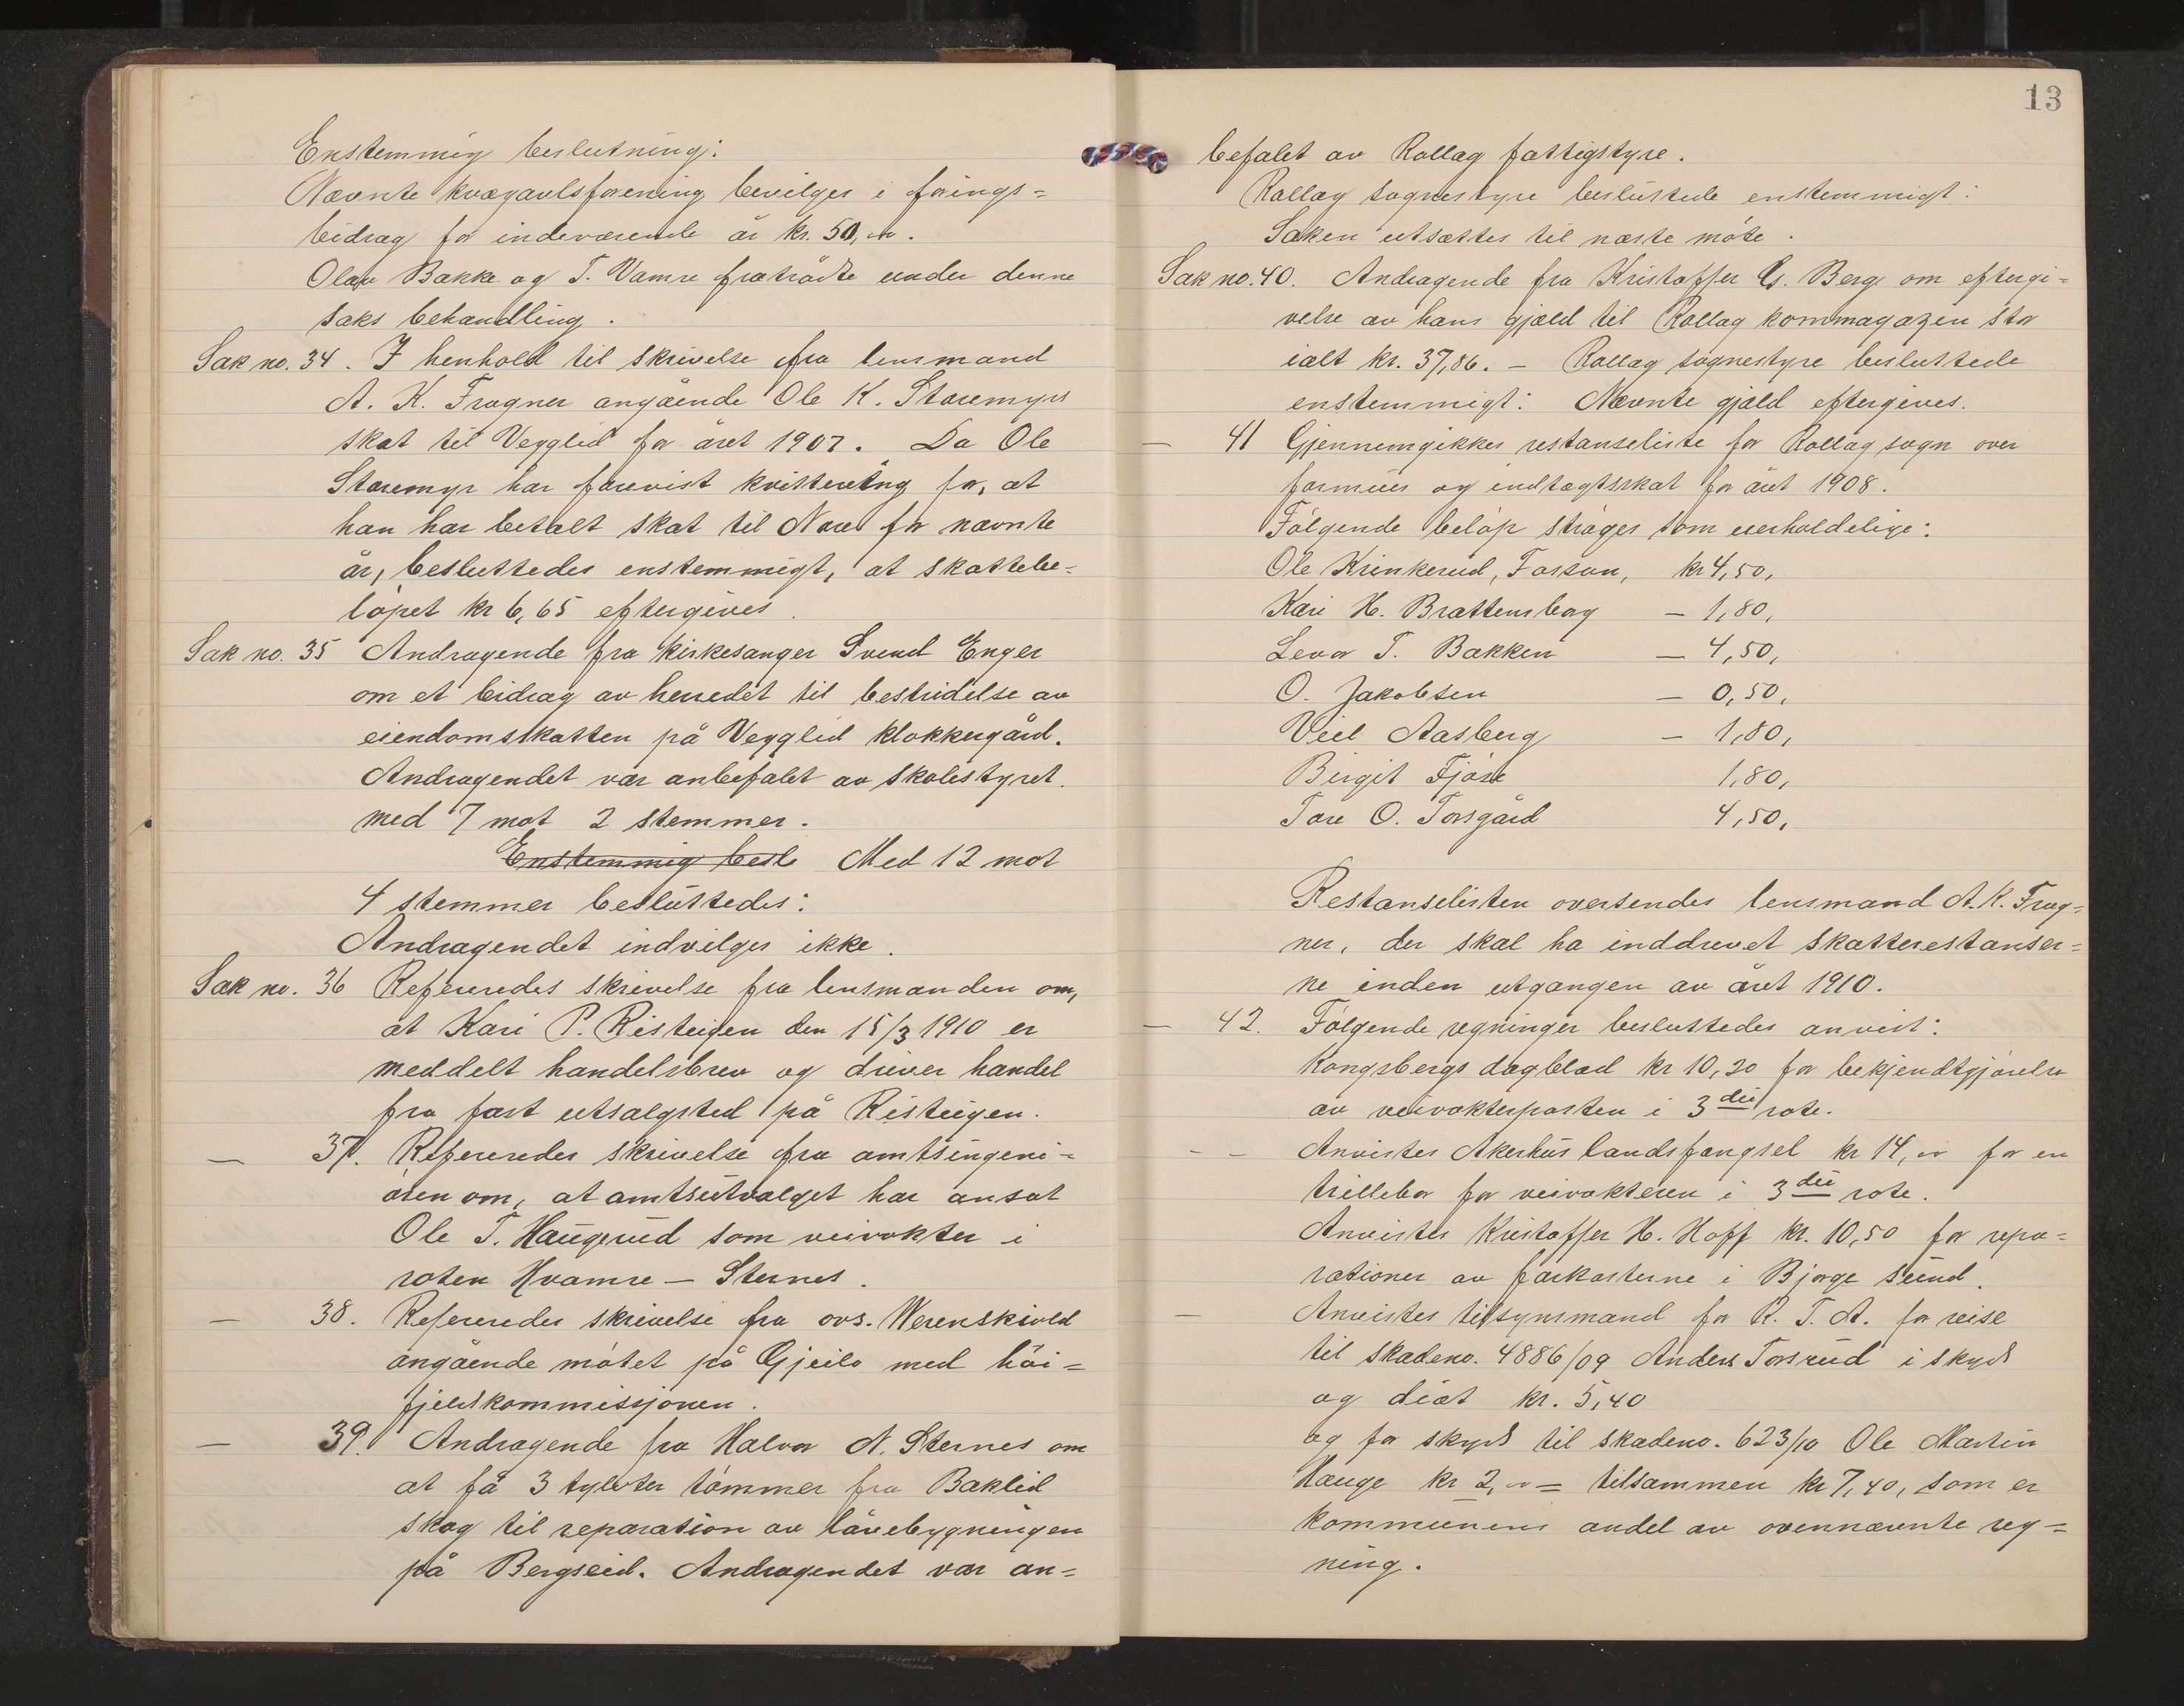 Enstemmig beslutning:
Nævnte kvægavlsforening bevilges i forings=
bidrag for indeværende år kr. 50,00.
Olav Bakke og T. Vamre fratrådte under denne
saks behandling.
Sak no. 34. I henhold til skrivelse fra lensmand
A. K. Frogner angående Ole K. Staremyrs
skat til Vegglid for året 1907. Da Ole
Staremyr har forevist kvittering for, at
han har betalt skat til Nore for nævnte
år, besluttedes enstemmigt, at skattebe-
løpet kr 6,65 eftergives.
Sak no. 35 Andragende fra kirkesanger Svend Enger
om et bidrag av herredet til bestridelse av
eiendomsskatten på Vegglid klokkergård.
Andragendet var anbefalet av skolestyret
med 7 mot 2 stemmer.
Enstemmig besl Med 12 mot
4 stemmer besluttedes:
Andragendet indvilges ikke.
Sak no. 36 Refereredes skrivelse fra lensmanden om,
at Kari P. Risteigen den 15/3 1910 er
meddelt handelsbrev og driver handel
fra fast utsalgsted på Risteigen.
— 37. Refereredes skrivelse fra amtsingeni-
øren om, at amtsutvalget har ansat
Ole T. Haugerud som veivokter i
roten Hvamre – Sternes.
— 38. Refereredes skrivelse fra ovs. Werenskiold
angående møtet på Gjeilo med høi=
fjeldskommissjonen.
— 39. Andragende fra Halvor N. Sternes om
at få 3 tylvter tømmer fra Baklid
skog til reparation av låvebygningen
på Bergseid. Andragendet var an=
13
befalet av Rollag fattigstyre.
Rollag sognestyre besluttede enstemmigt:
Saken utsættes til næste møte.
Sak no. 40. Andragende fra Kristoffer G. Berge om eftergi=
velse av hans gjæld til Rollag kornmagazin stor
ialt kr. 37,86. – Rollag sognestyre besluttede
enstemmigt: Nævnte gjæld eftergives.
— 41 Gjennemgikkes restanseliste for Rollag sogn over
formues og indtægtsskat for året 1908.
Følgende beløp strøges som uerholdelige:
Ole Krinkerud, Fossan, kr 4,50,
Kari H. Brattensborg — 1,80,
Levor T. Bakken — 4,50,
O. Jakobsen — 0,50,
Veel Aasberg — 1,80,
Birgit Fjøse 1,80,
Tore O. Torsgård 4,50,
Restanselisten oversendes lensmand A. K. Frog=
ner, der skal ha inddrevet skatterestanser=
ne inden utgangen av året 1910.
— 42. Følgende regninger besluttedes anvist:
Kongsbergs dagblad kr 10,20 for bekjendtgjørelse
av veivokterposten i 3die rote.
- - Anvistes Akerhus landsfængsel kr 14,00 for en
trillebør for veivokteren i 3die rote.
Anvistes Kristoffer H. Hoff kr. 10,50 for repa=
rationer av farkosterne i Bjørge sund.
— Anvistes tilsynsmand for R. T. A. for reise
til skadeno. 4886/09 Anders Torsrud i skyds
og diæt kr. 5,40
og for skyds til skadeno. 623/10 Ole Martin
Hauge kr 2,00 = tilsammen kr 7,40, som er
kommunens andel av ovennævnte reg=
ning.